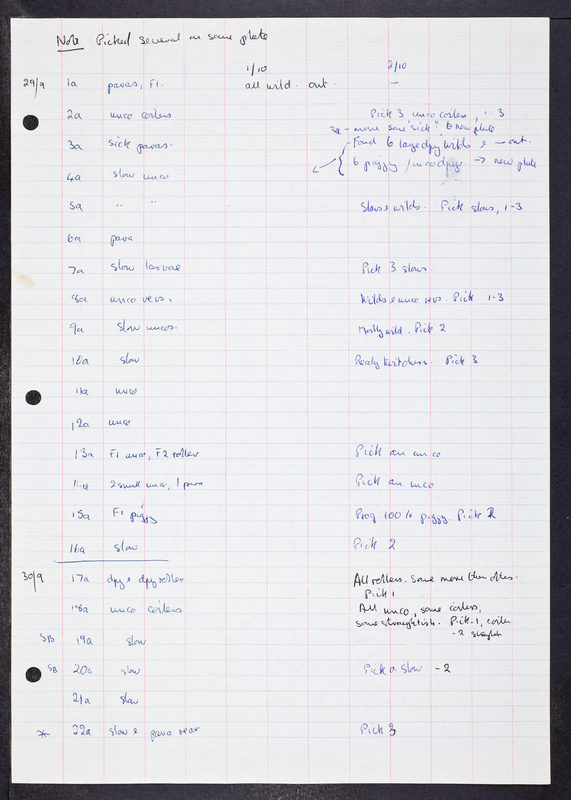 Note Picked several on same plate
1/10 2/10
29/9 1a paras, F1. all wild. out. —
2a unco coilers Pick 3 unco coilers, 1-3
3a - move some "sick" to new plate
3a sick paras. Found 6 large dpy wilds → out.
4a slow unco 6 piggy / unco dpys → new plate
5a " " Slows & wilds. Pick slows, 1-3
6a para
7a slow larvae Pick 3 slows
8a unco revs. Wilds & unco revs. Pick 1-3
9a slow uncos. Mostly wild. Pick 2
10a slow Really twitchers. Pick 3
11a unco
12a unco
13a F1 unco, F2 roller Pick an unco
14a 2 small unco, 1 para Pick an unco
15a F1 piggy Prog. 100% piggy. Pick 2
16a slow Pick 2
30/9 17a dpy & dpy roller All rollers. Some more than others.
Pick 1
18a unco coilers All unco, some coilers,
some straightish. Pick -1, coiler
-2 straight
SB 19a slow
SB 20a slow Pick a slow -2
21a slow
* 22a slow & para rear Pick 3